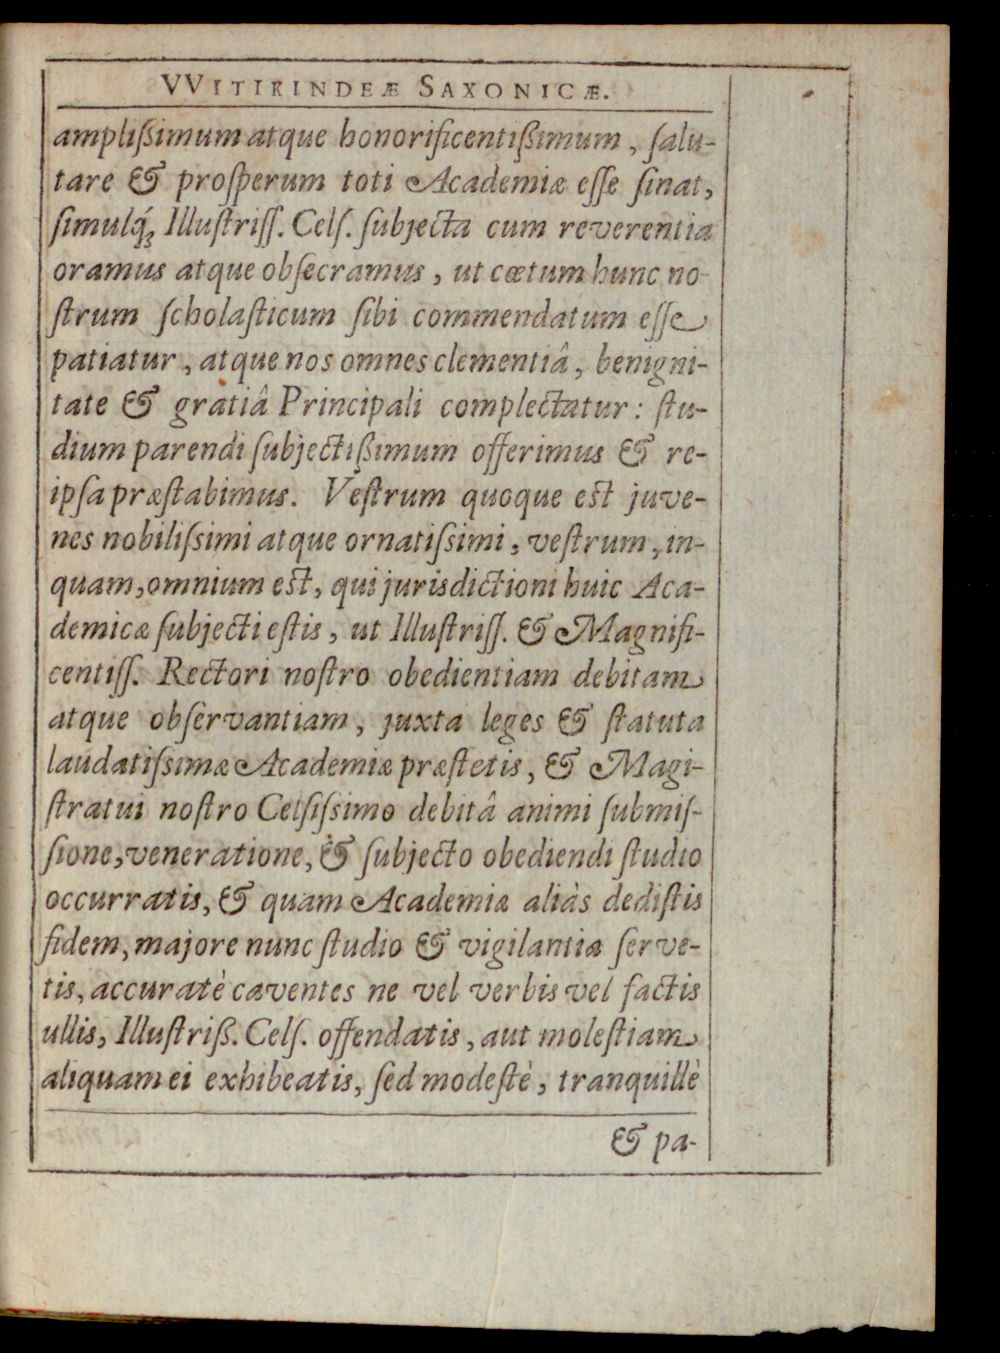 VVITIKINDEÆ SAXONICÆ.
ampliſſimum atque honorificentiſſimum, ſalu-
tare & proſperum toti Academiæ eſſe ſinat,
ſimulq́; Illuſtriſſ. Celſ. ſubjecta cum reverentia
oramus atque obſecramus, ut cœtum hunc no-
ſtrum ſcholaſticum ſibi commendatum eſſe
patiatur, atque nos omnes clementiâ, benigni-
tate & gratiâ Principali complectatur: ſtu-
dium parendi ſubjectißimum offerimus & re-
ipſa præſtabimus. Veſtrum quoque est juve-
nes nobiliſsimi atque ornatiſsimi, veſtrum, in-
quam, omnium est, qui jurisdictioni huic Aca-
demicæ ſubjecti eſtis, ut Illuſtriſſ. & Magnifi-
centiſſ. Rectori noſtro obedientiam debitam
atque obſervantiam, juxta leges & ſtatuta
laudatiſsimæ Academiæ præſtetis, & Magi-
ſtratui noſtro Celſiſsimo debitâ animi ſubmiſ-
ſione, veneratione, & ſubjecto obediendi ſtudio
occurratis, & quam Academiæ aliàs dediſtis
fidem, majore nunc ſtudio & vigilantia ſerve-
tis, accuratè caventes ne vel verbis vel factis
ullis, Illuſtriß. Celſ. offendatis, aut moleſtiam
aliquam ei exhibeatis, ſed modeſtè, tranquillè
& pa-